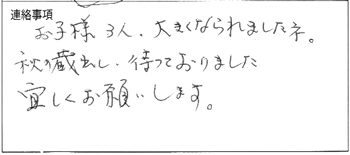 連絡事項
お子様3人、大きくなられましたネ。
秋の蔵出し、待っておりました
宜しくお願いします。